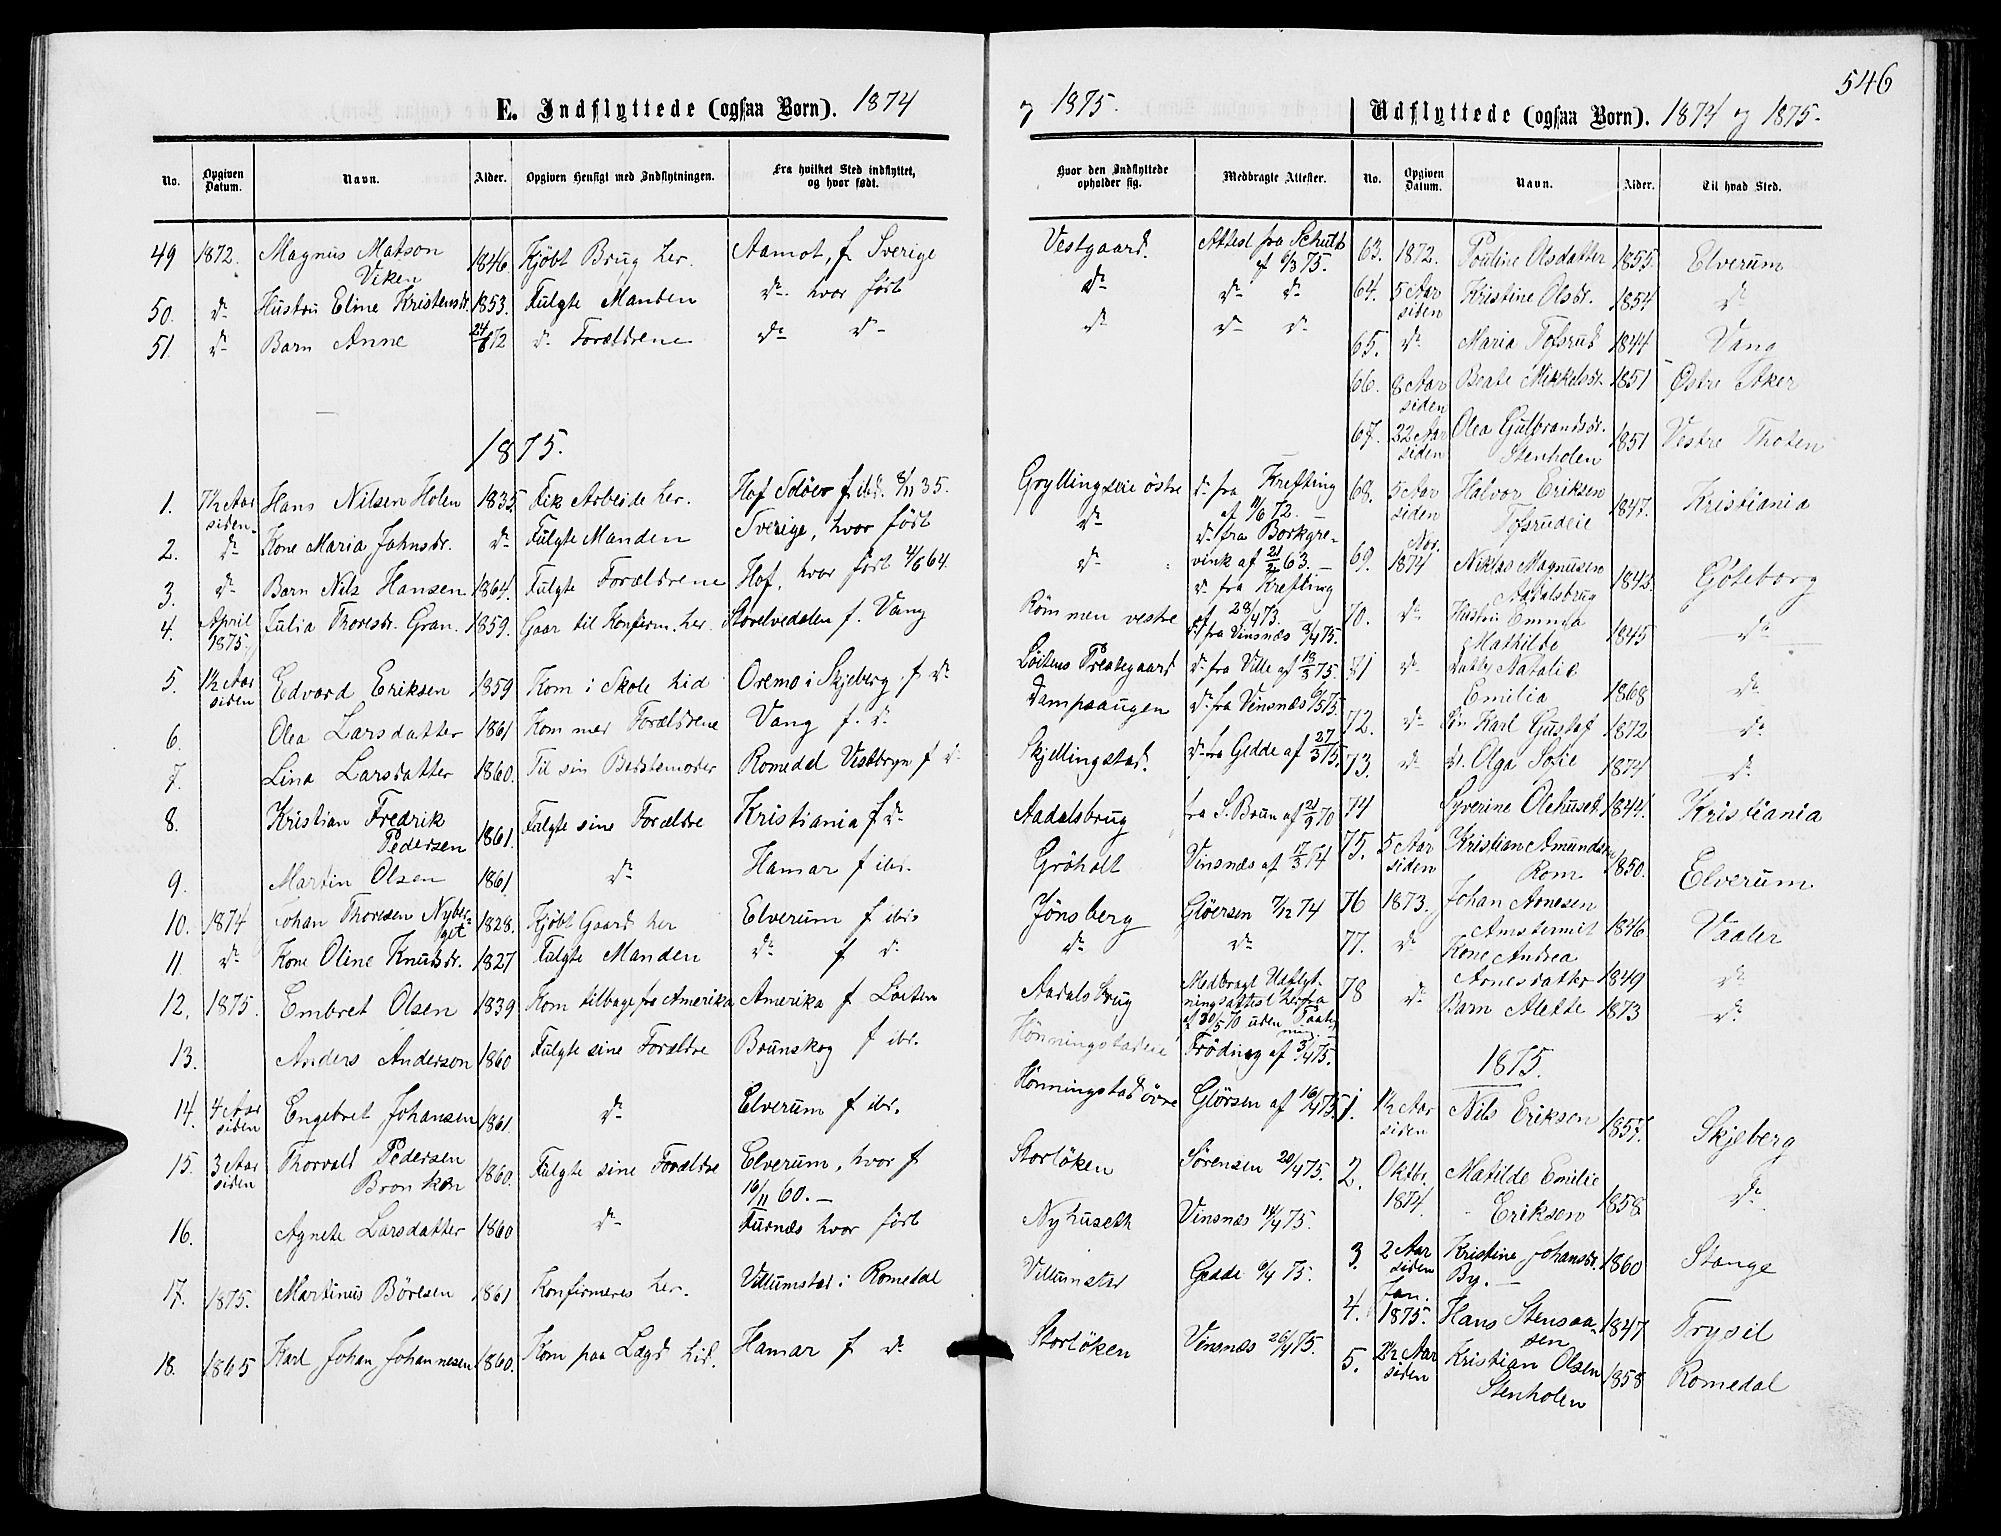 546
E. Indflyttede (ogsaa Børn). 1874
No. Opgiven Datum. Navn. Alder. Opgiven Hensigt med Indflytningen. Fra hvilket Sted indflyttet, og hvor født.
49 1872. Magnus Matson Viken 1846 Kjøbt Brug her. Aamot, f. Sverige
50. do Hustru Eline Kristensdr. 1853. Fulgte Manden do hvor født
51. do Barn Anne 24/8 72 do Forældrene do do
1875.
1. 7½ Aar siden Hans Nilsen Holen 1835. Fik Arbeide her. Hof Solöer f. ibd. 8/11 35.
2. do Kone Maria Jahnsdr. do Fulgte Manden Sverige, hvor født
3. do Barn Nils Hansen 1864. Fulgte Forældrene Hof, hvor født 4/6 64.
4. April 1875. Julia Thoresdr. Gran. 1859. Gaar til Konfirm. her. Stavelvedalen f. Vang
5. 1½ Aar siden Edvard Eriksen 1859 Kom i Skole hid Oremo i Skjeberg f do
6. Olea Larsdatter 1861 Kom med Forældrene Vang f. do
7. Lina Larsdatter 1860. Til sin Bedstemoder Romedal Vestbryn f do
8. Kristian Fredrik Pedersen 1861. Fulgte sine Forældre Kristiania f do
9. Martin Olsen 1861 do Hamar f ibd.
10. 1874 Johan Thoresen Nyberget 1828. Kjøbt Gaard her Elverum f ibd
11 do Kone Oline Knudsdr. 1827 Fulgte Manden do f do
12. 1875. Embret Olsen 1839 Kom tilbage fra Amerika Amerika f Löiten
13. Anders Anderson 1860 Fulgte sine Forældre Brunskog f ibd.
14. 4 Aar siden Engebret Johansen 1861 do Elverum f ibd.
15. 3 Aar siden Thorvald Pedersen Bronken 1860. Fulgte sine Forældre Elverum, hvor f 16/11 60.
16. Agnete Larsdatter 1860 do Furnæs hvor født
17. 1875. Martinus Böresen 1861 Konfirmeres her. Villumstad i Romedal
18. 1865 Karl Johan Johannesen 1860. Kom paa Lægd hid. Hamar f do
og 1875.
Hvor den Indflyttede opholder sig. Medbragte Attester.
Vestgaard. Attest fra Schult af 6/3 75.
do do do
do do do
Gryllingseie östre do fra Krefting af 11/6 72.
do do fra Borkgrevink af 21/ 63.
do do fra Krefting af 28/4 73.
Römmen vestre do fra Vinsnæs 4/4 75.
Löitens Prestegaard do fra Ville af 13/3 75.
Dampsaugen do fra Vinsnæs 6/5 75
Skjellingstad. do fra Gedde af 27/3 75.
Aadalsbrug fra S. Brun af 21/9 70
Gröholt Vinsnæs af 17/3 74
Jönsberg Glöersen 7/12 74
do do
Aadalsbrug Medbragt Udflytningsattest herfra af 30/5 70 uden
Hönningstadeie Fröding af 3/4 75.
Hönningstad övre Glörsen af 16/4 75
Storlöken Sörensen 20/4 75.
Nyhuseth Vinsnæs 14/4 75.
Villumstad Gedde 9/4 75.
Storlöken Vinsnæs 26/4 75.
Udflyttede (ogsaa Børn). 1874 og 1875.
No. Opgiven Datum. Navn. Alder. Til hvad Sted.
63. 1872. Pouline Olsdatter 1855. Elverum
64. 5 Aar siden Kristine Olsdr. 1854 do
65. do Maria Tofsrud 1844 Vang
66. 8 Aar siden Beate Mikkelsdr. 1851 Östre Aker
67. 22 Aar siden Olea Gulbrandsdr. Stenholen 1851 Vestre Thoten
68. 5 Aar siden Halvor Eriksen Tofsrudeie 1847. Kristiania
69. Nov. 1874 Niklas Magnusen Aadalsbrug 1842 Göteborg
70. do Hustru Emma Mathilde 1845 do
71 do datter Natalie Emilia 1868 do
72. do Sön Karl Gustaf 1872 do
73. do dr. Olga Sofie 1874 do
74 Syverine Olehuset 1844. Kristiania
75. 5 Aar siden Kristian Amundsen Rom 1850. Elverum
76 1873. Johan Arnesen 1846 Vaaler
77. do Kone Andrea Arnesdatter 1849 do
78 do Barn Alette 1873 do
1875.
1. 1½ Aar siden Nils Eriksen 1857. Skjeberg
2. Oktbr. 1874. Matilde Emilie Eriksen 1858 do
3. 2 Aar siden Kristine Johansdr. By. 1860 Stange
4. Jan. 1875. Hans Stensaasen 1847 Trysil
5. 2½ Aar siden Kristian Olsen Stenholen 1858 Romedal